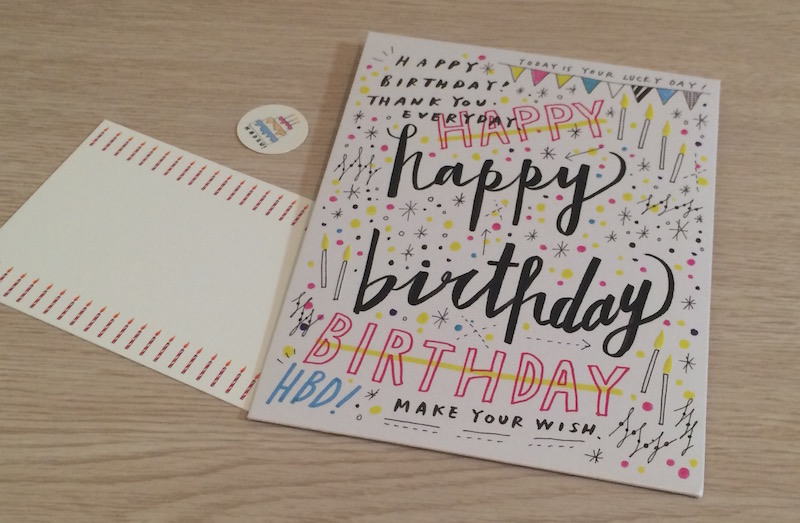 TODAY IS YOUR LUCKY DAY!
HAPPY
BIRTHDAY!
THANK YOU.
EVERYDAY
HAPPY
happy
birthday
BIRTHDAY
HBD!
MAKE YOUR WISH.